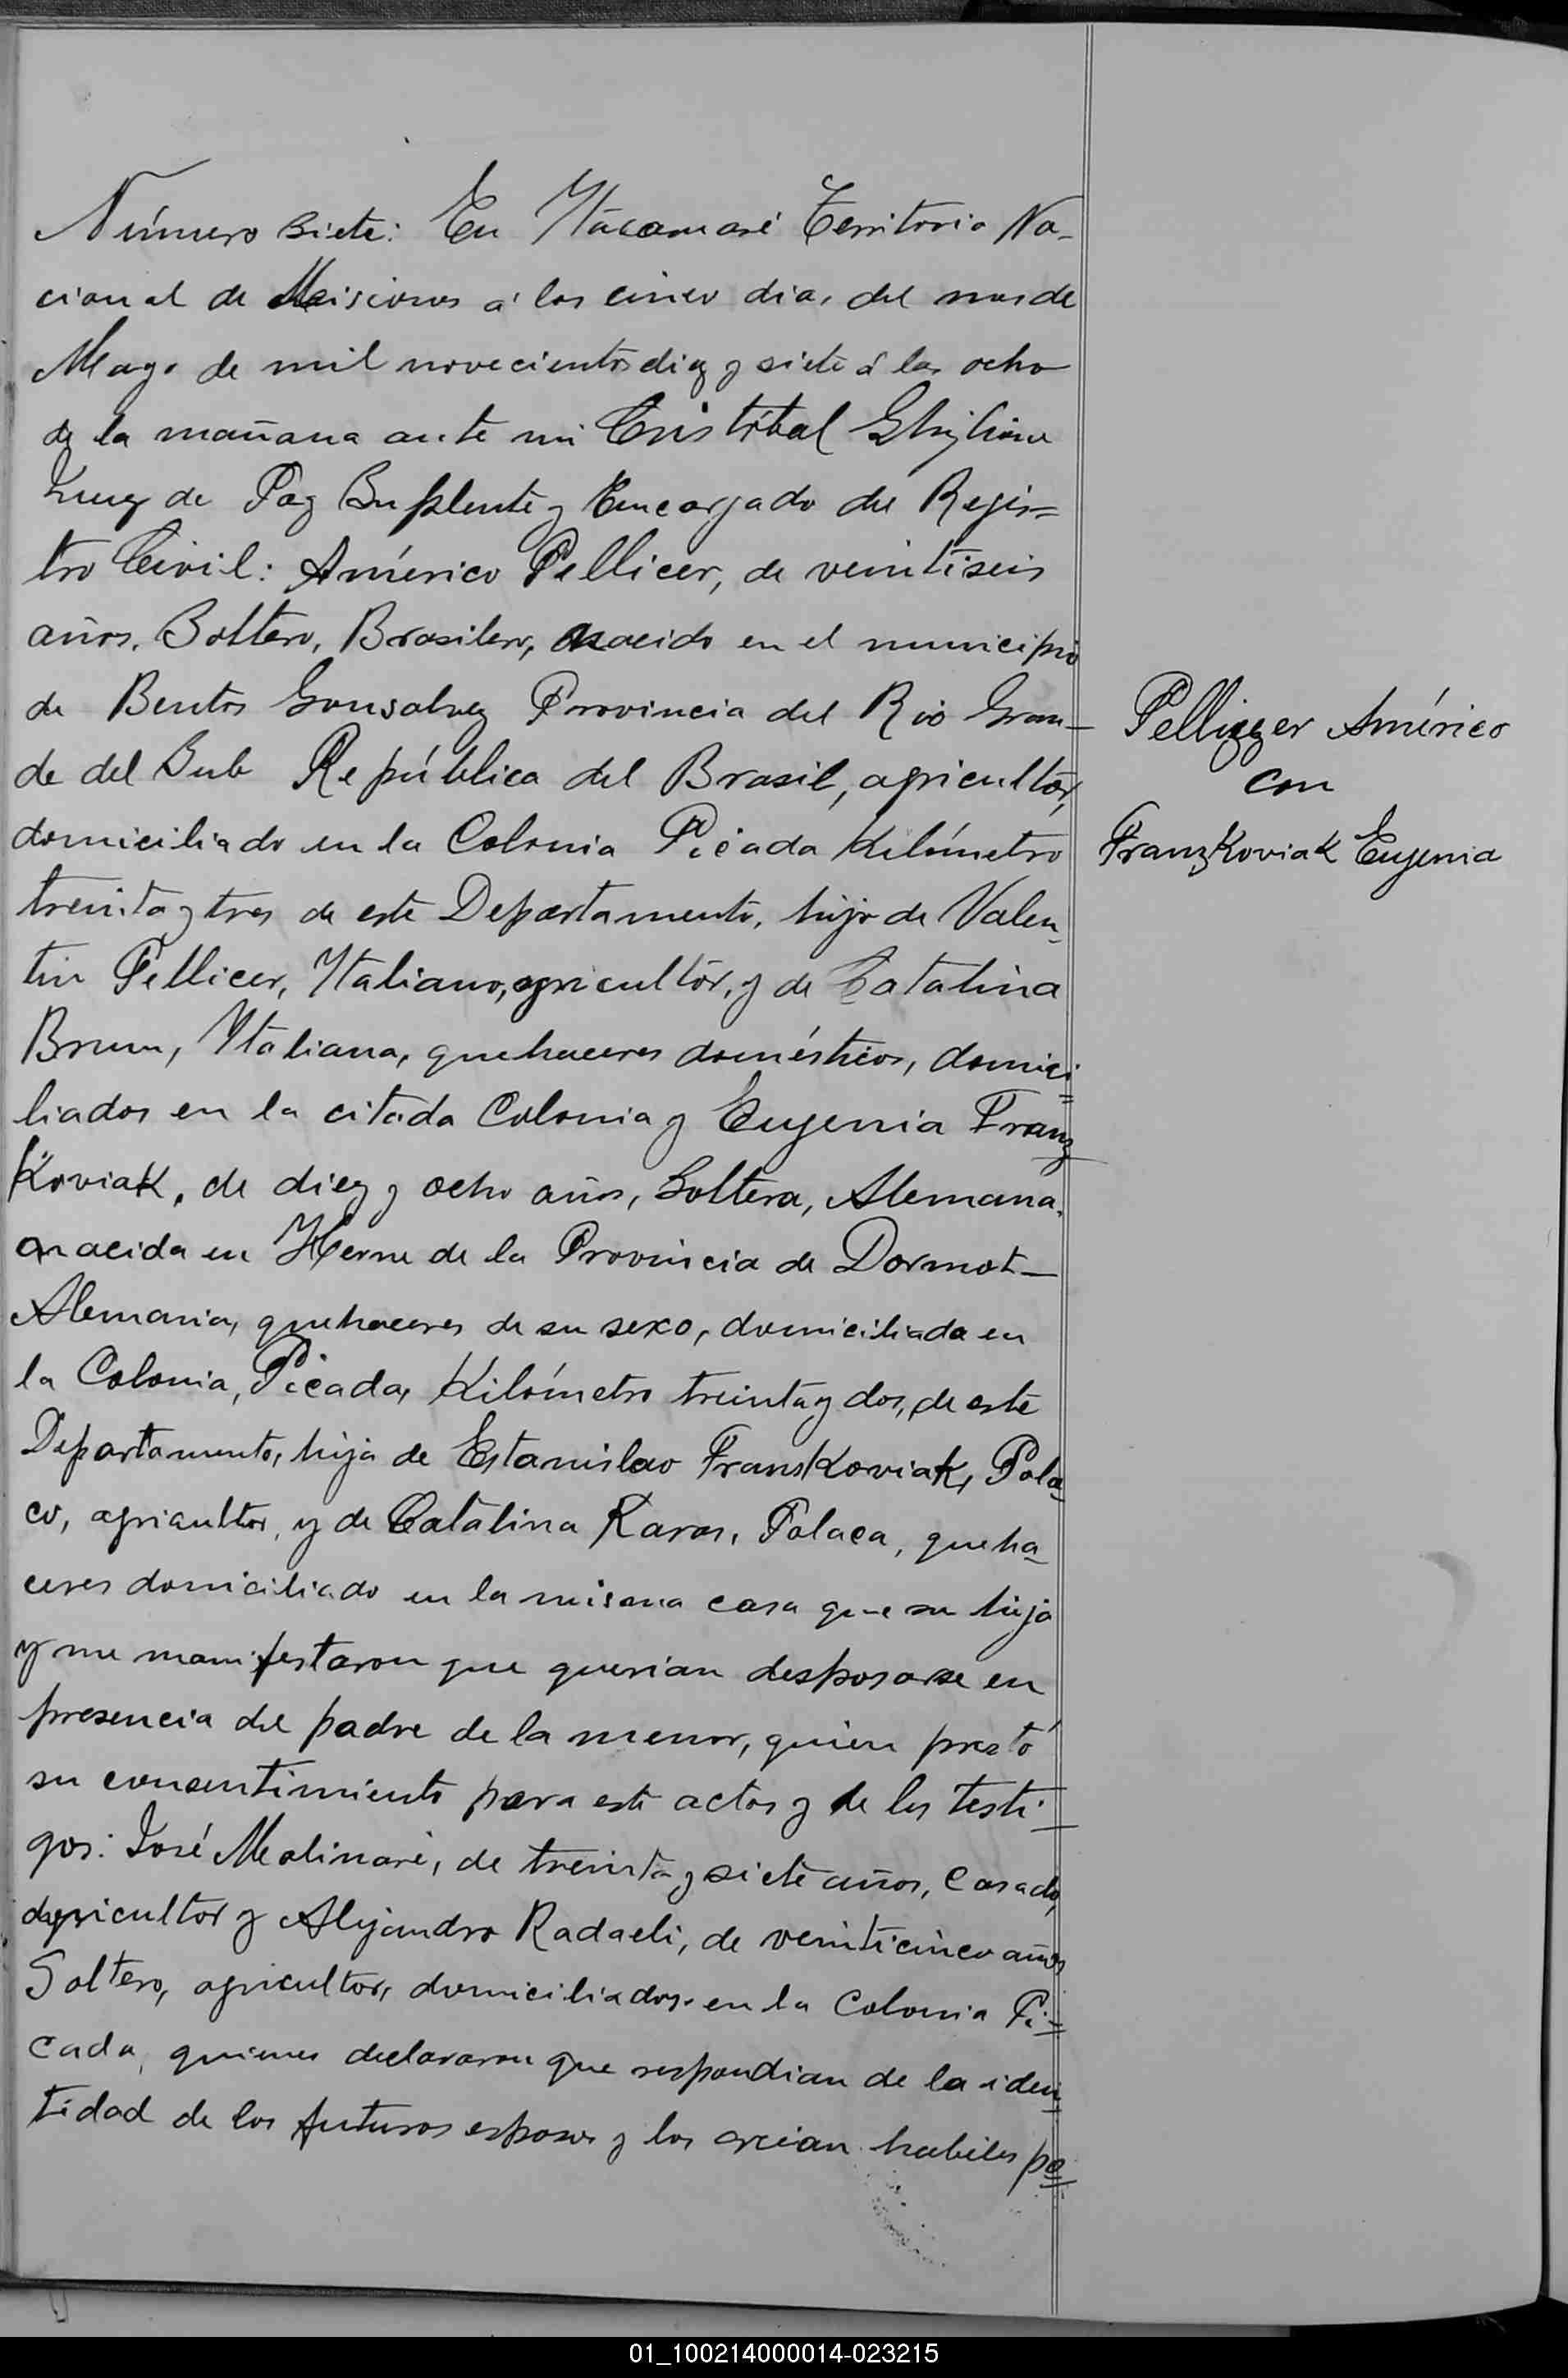 Número Siete: En Itacaruaré Territorio Na-
cional de Misiones á los cinco dias del mes de
Mayo de mil novecientos diez y siete á las ocho
de la mañana ante mi Cristóbal Ghiglione
Juez de Paz Suplente y Encargado del Regis=
tro Civil: Américo Pellicer, de veintiseis
años, Soltero, Brasilero, nacido en el municipio
de Bentos Gonsalvez Provincia del Rio Gran-
de del Sub República del Brasil, agricultor,
domiciliado en la Colonia Picada Kilómetro
treinta y tres de este Departamento, hijo de Valen-
tin Pellicer, Italiano, agricultor, y de Catalina
Brum, Italiana, quehaceres domésticos, domici=
liados en la citada Colonia y Eugenia Franz
Koviak, de diez y ocho años, Soltera, Alemana,
nacida en Herne de la Provincia de Dormot-
Alemania, quehaceres de su sexo, domiciliada en
la Colonia, Picada, Kilómetro treinta y dos, de este
Departamento, hija de Estanislao Franskoviak, Pola-
co, agricultor, y de Catalina Karas, Polaca, queha-
ceres domiciliado en la misma casa que su hija
y me manifestaron que querian desposarse en
presencia del padre de la menor, quien prestó
su consentimiento para este actos y de los testi-
gos: José Molinari, de treinta y siete años, Casado,
agricultor y Alejandro Radaeli, de veinticinco años
Soltero, agricultor, domiciliados en la Colonia Pi=
cada, quienes declararon que respondian de la iden=
tidad de los futuros esposos y los creian habiles pa=
Pellizzer Américo
con
Franzkoviak Eugenia
01_100214000014-023215